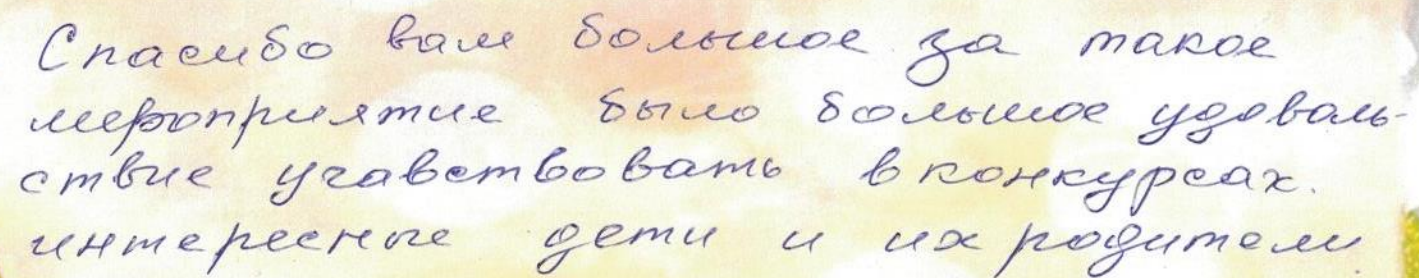 Спасибо вам большое за такое
мероприятие было большое удоволь-
ствие учавствовать в конкурсах.
интересные дети и их родители